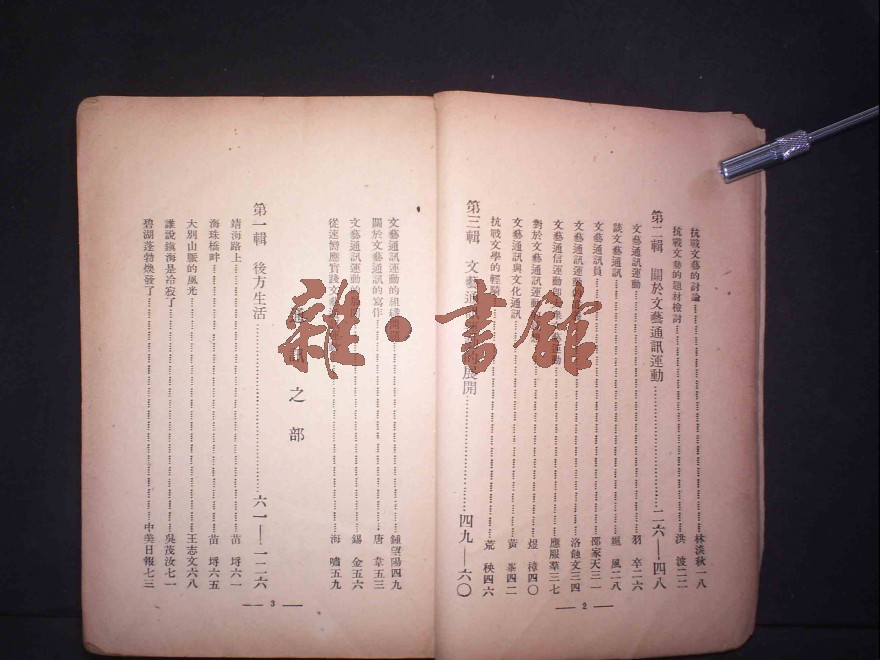 抗戰文藝的討論……林淡秋一八
抗戰文藝的題材檢討……洪 波二二
第二輯 關於文藝通訊運動……二六—四八
文藝通訊運動……羽 卒二六
談文藝通訊……颯 風二八
文藝通訊員……邵家天三一
文藝通訊運動……洛蝕文三四
文藝通信運動……應服羣三七
對於文藝通訊運動……煜 樟四〇
文藝通訊與文化通訊……黃 峯四二
抗戰文學的輕騎……荒 秧四六
第三輯 文藝通的展開……四九—六〇
— 2 —
文藝通訊運動的組織……鍾望陽四九
關於文藝通訊的寫作……唐 韋五三
文藝通訊運動的……錫 金五六
從速響應實踐文藝……海 嘯五九
之部
第一輯 後方生活……六一—一二六
靖海路上……苗 埒六一
海珠橋畔……苗 埒六五
大別山脈的風光……王志文六八
誰說鎮海是冷寂了……吳茂汝七一
碧湖蓬勃煥發了……中美日報七三
— 3 —
雜·書館